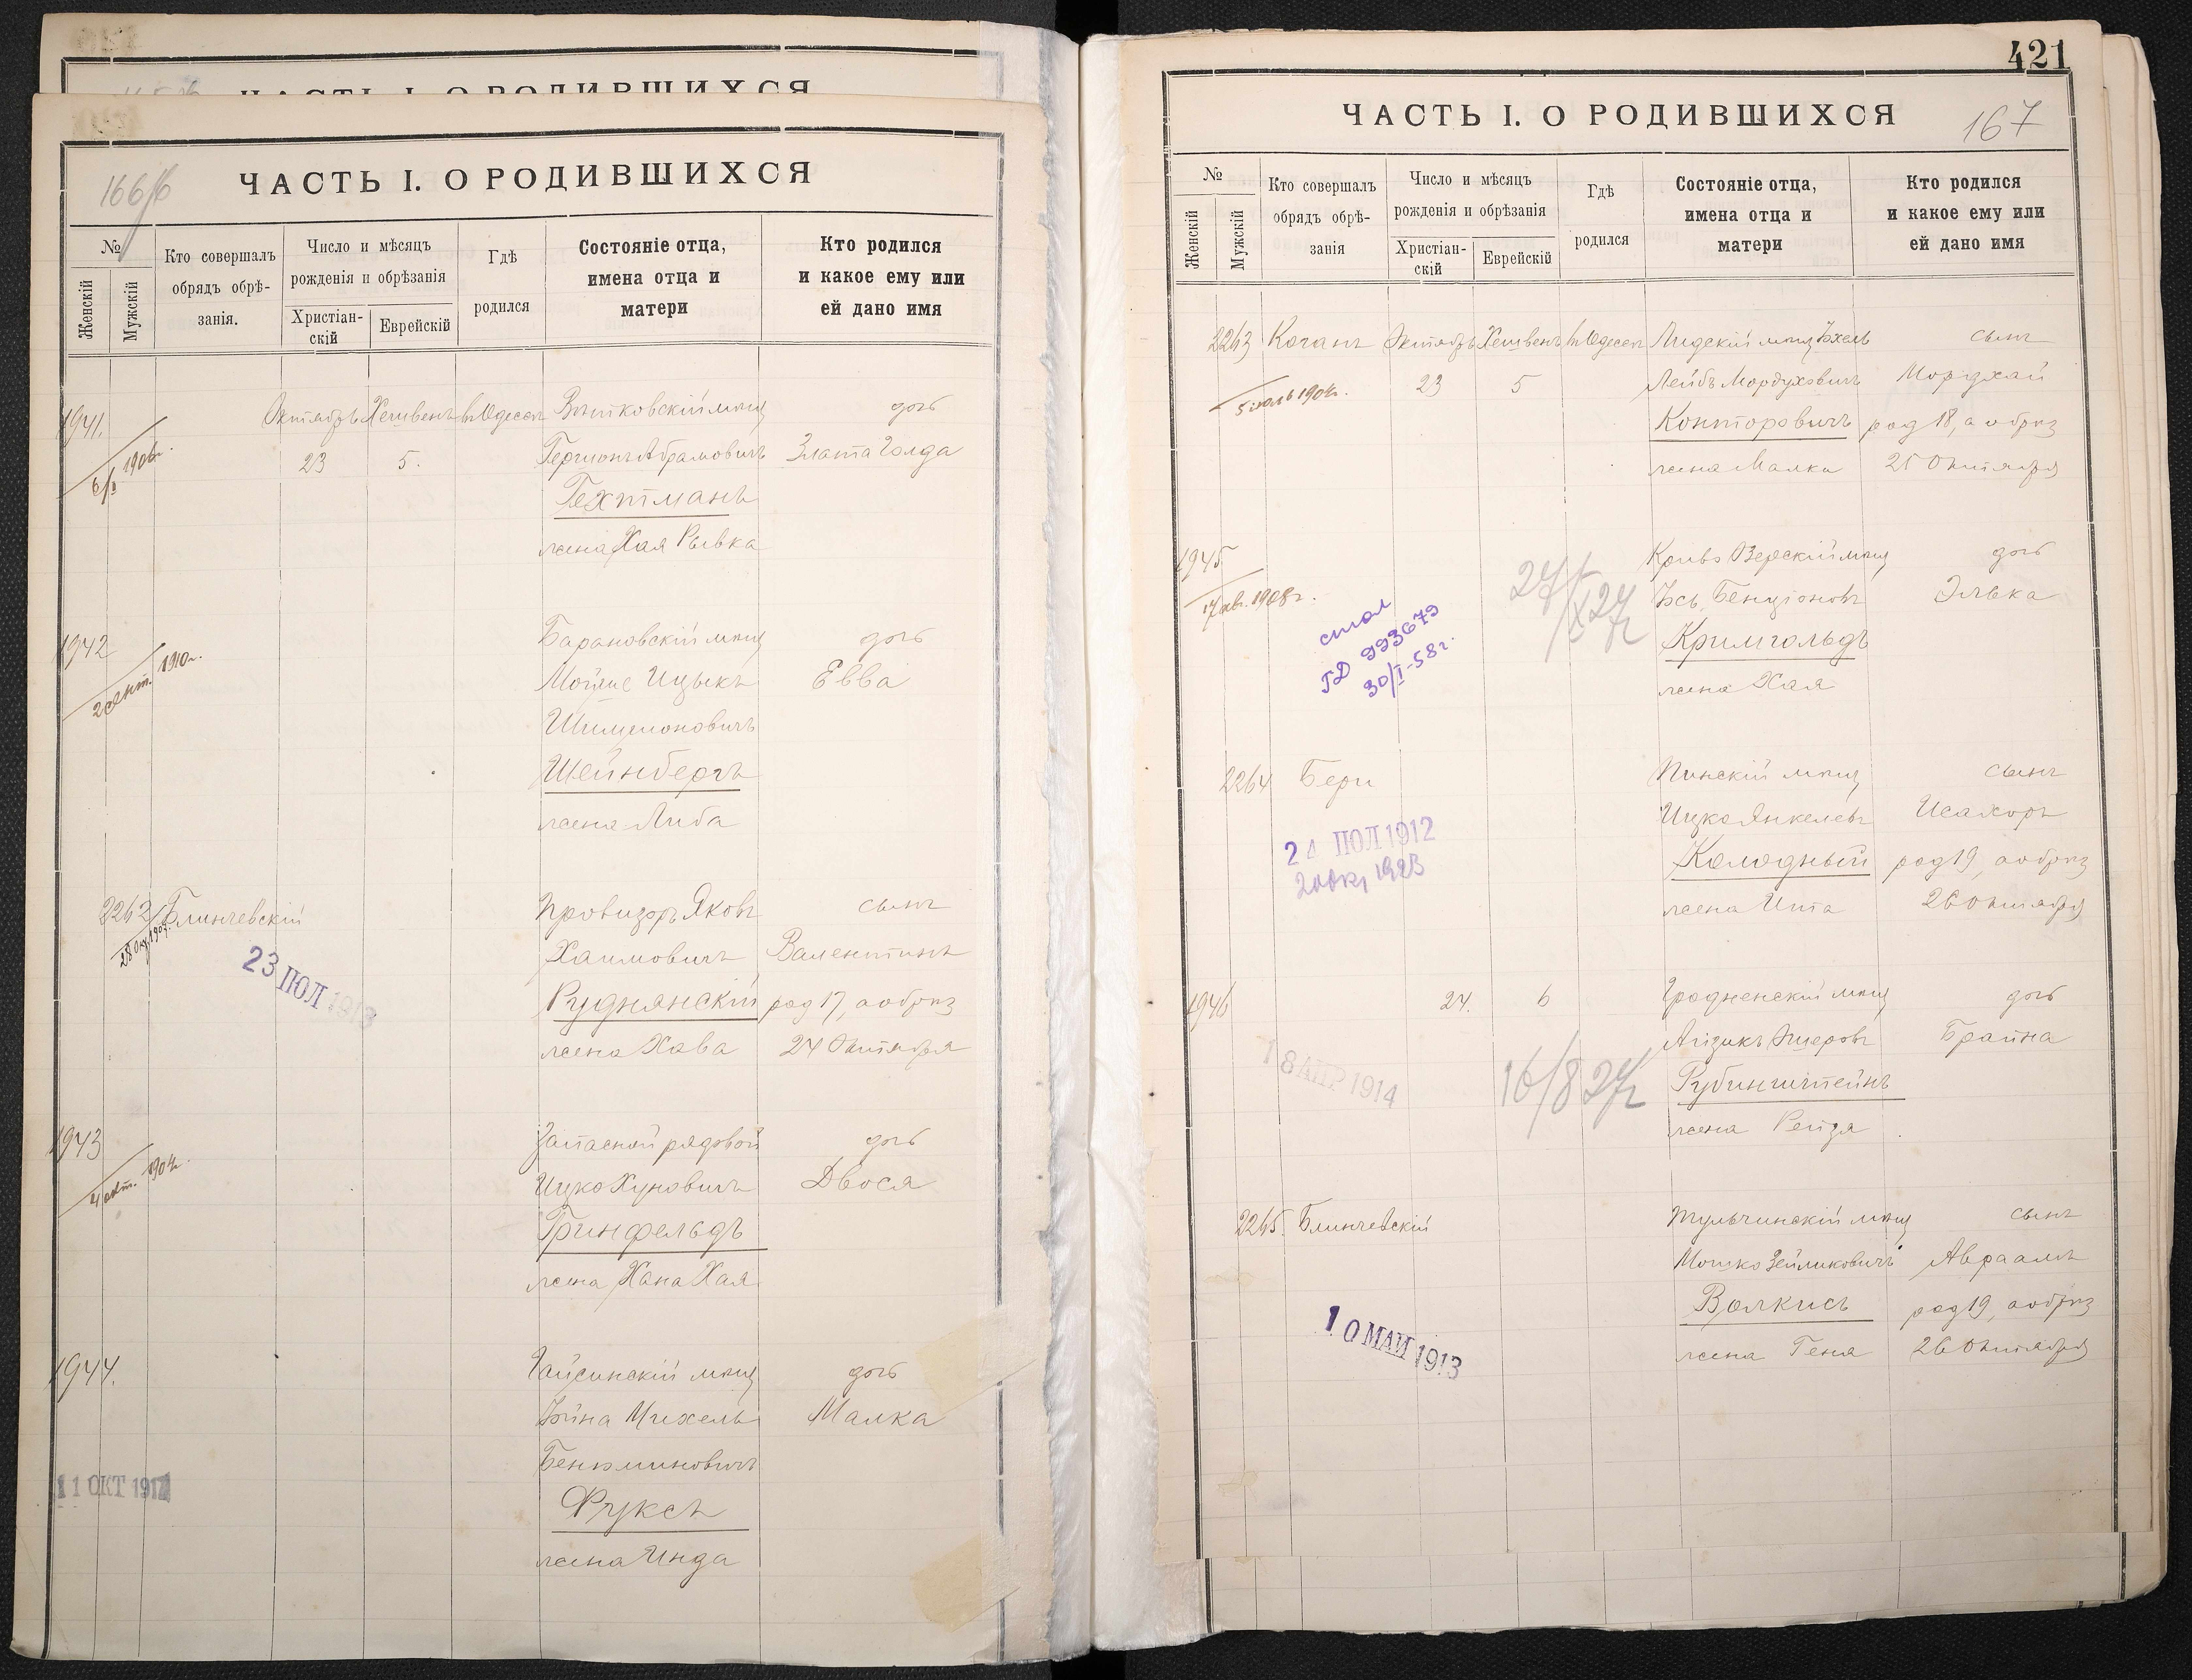 ЧАСТЬ I. О РОДИВШИХСЯ
ЧАСТЬ I. О РОДИВШИХСЯ
166/б
№
Женскій
Мужскій
Кто совершалъ
обрядъ обрѣ-
занія.
Число и мѣсяцъ
рожденія и обрѣзанія
Христіан-
скій
Еврейскій
Гдѣ
родился
Состояніе отца,
имена отца и
матери
Кто родился
и какое ему или
ей дано имя
1941.
6/I 1906г.
Октябрь Хешвенъ въ Одессѣ
23 5.
мѣщ
Абрамовичъ
Гехтманъ
жена Хая Рывка
дочь
Злата Голда
1942
2 сент. 1910г.
Барановскій мѣщ
Мойше Ицыкъ
Шимионовичъ
Шейнбергъ
жена Либа
дочь
Евва
2262
Блинчевскій
23 ІЮЛ 1913
Провизоръ Яковъ
Хаимовичъ
Руднянскій
жена Хава
сынъ
Валентинъ
род 17, а обрѣз
24 Октября
1943
4 1904г.
Запасной рядовой
Ицко Хуновичъ
Гринфельдъ
жена Хана Хая
дочь
Двося
1944.
11 ОКТ 191
Гайсинскій мѣщ
Михель
Бенюминовичъ
Фуксъ
жена Инда
дочь
Малка
421
ЧАСТЬ I. О РОДИВШИХСЯ
167
№
Женскій
Мужскій
Кто совершалъ
обрядъ обрѣ-
занія
Число и мѣсяцъ
рожденія и обрѣзанія
Христіан-
скій
Еврейскій
Гдѣ
родился
Состояніе отца,
имена отца и
матери
Кто родился
и какое ему или
ей дано имя
2263 Коганъ Октябрь Хешвенъ въ Одессѣ
5 1904г.
23 5
Лидскій мѣщ Ѣхель
Лейбъ Мордуховичъ
Конторовичъ
жена Малка
сынъ
Мордхай
род 18, а обрѣз
25 Октября
1945
17 1908г.
ГД 993679
30/I-58г.
27/X 27г
мѣщ
Бенціоновъ
Кримгольдъ
жена Хая
дочь
Элька
2264 Бери
24 ІЮЛ 1912
Пинскій мѣщ
Ицко Янкелевъ
Колодный
жена Ита
сынъ
Исахоръ
род 19, а обрѣз
26 Октября
1946 24. 6
18 АПР 1914
16/8 27г
Гродненскій мѣщ
Айзикъ
Рубинштейнъ
жена Рейза
дочь
Брайна
2265. Блинчевскій
10 МАЙ 1913
Тульчинскій мѣщ
Мошко Зейликовичъ
Волкисъ
жена Геня
сынъ
Авраамъ
род 19, а обрѣз
26 Октября